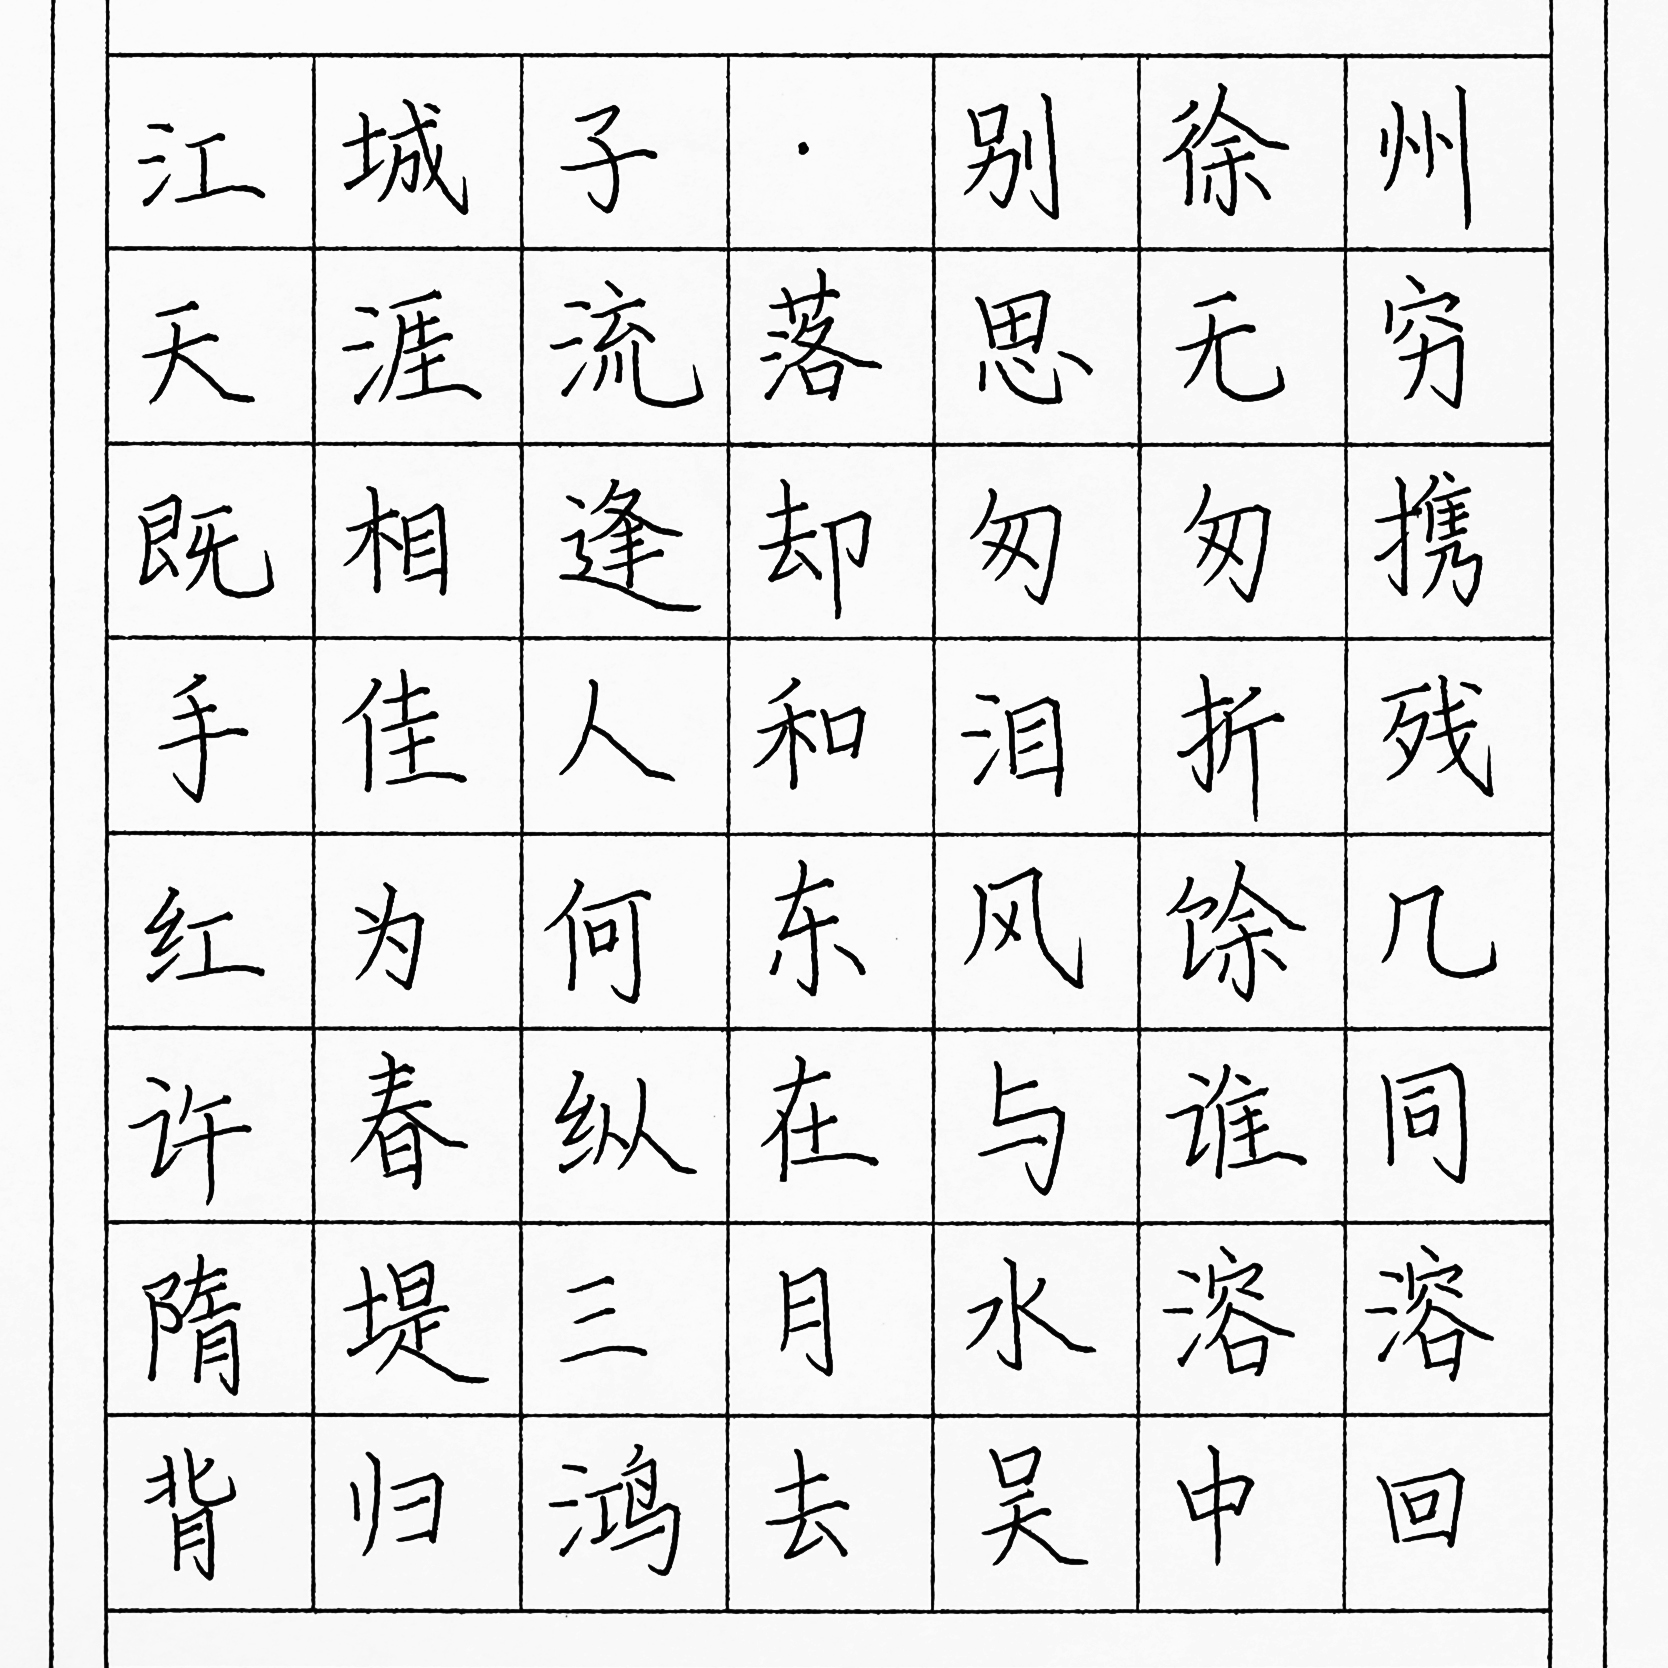 江城子·别徐州
天涯流落思无穷
既相逢却匆匆携
手佳人和泪折残
红为何东风馀几
许春纵在与谁同
隋堤三月水溶溶
背归鸿去吴中回